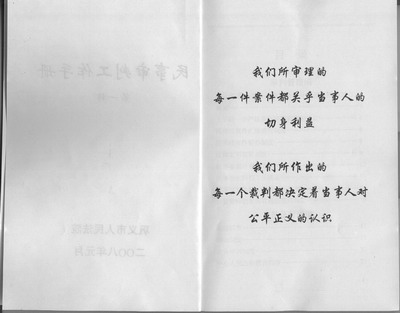 民事审判工作手册
第一辑
巩义市人民法院
二〇〇八年元月
我们所审理的
每一件案件都关乎当事人的
切身利益
我们所作出的
每一个裁判都决定着当事人对
公平正义的认识